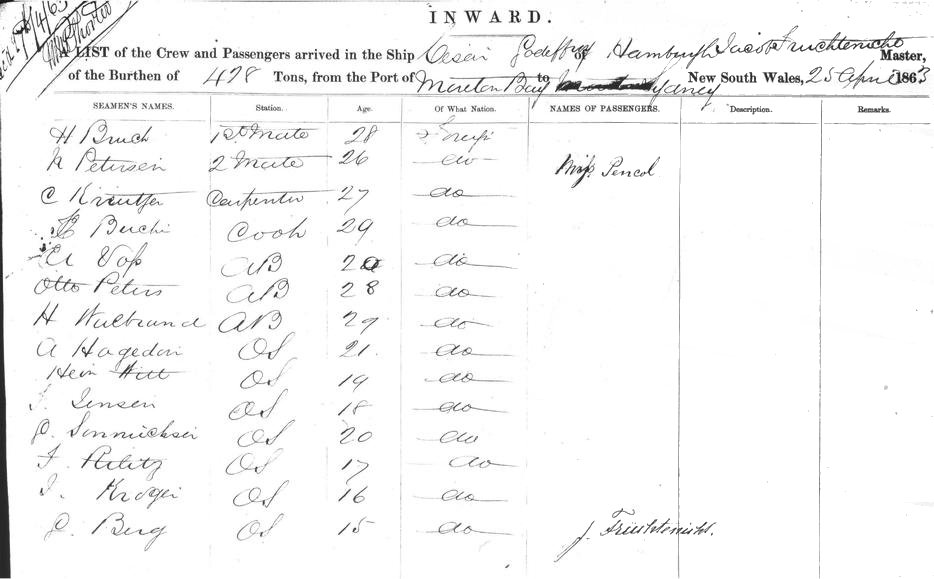 INWARD.
LIST of the Crew and Passengers arrived in the Ship Cesar Godeffroy of Hamburgh Jacob Fruchtenicht Master,
of the Burthen of 428 Tons, from the Port of Moreton Bay to Sydney New South Wales, 25 April 1863
SEAMEN'S NAMES. Station. Age. Of What Nation. NAMES OF PASSENGERS. Description. Remarks.
H Bruch 1st Mate 28
N Petersen 2 Mate 26 do Miss Pencol
C Kreutfer Carpenter 27 do
Buchi Cook 29 do
Voss AB 20 do
Otto Peters AB 28 do
H Wulbrand AB 29 do
A Hagedorn OS 21 do
Hein Witt OS 19 do
J. Jensen OS 18 do
Sonnichsen OS 20 do
F. OS 17 do
J. Kroger OS 16 do
C. Berg OS 15 do J. Früchtenicht.